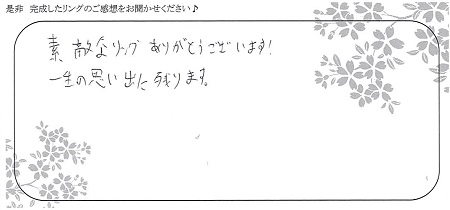 是非 完成したリングのご感想をお聞かせください♪
素敵なリング ありがとうございます!
一生の思い出に残ります。